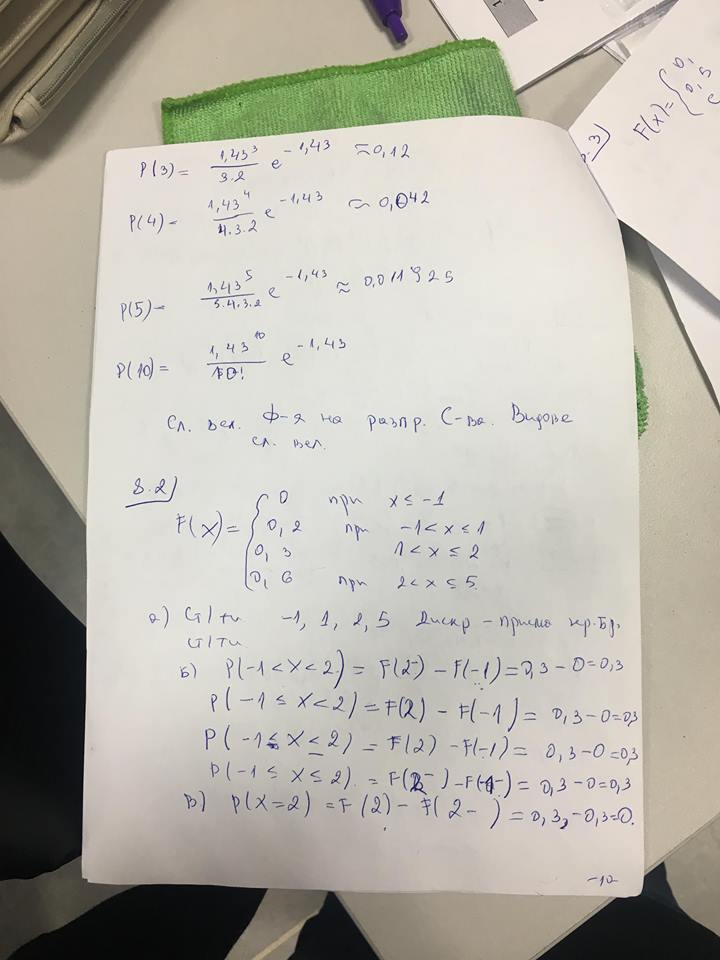 P(3) = 1,43³ / 3.2 e^-1,43 ≈ 0,12
P(4) = 1,43⁴ / 4.3.2 e^-1,43 ≈ 0,042
P(5) = 1,43⁵ / 5.4.3.2 e^-1,43 ≈ 0,011925
P(10) = 1,43¹⁰ / 10! e^-1,43
Сл. вел. Ф-я на разпр. С-ва. Видове
сл. вел.
8.2)
F(x) = { 0 при x ≤ -1
0,2 при -1 < x ≤ 1
0,3 1 < x ≤ 2
0,6 при 2 < x ≤ 5
а) Ст/ти -1, 1, 2, 5 Дискр - приема кр. бр.
ст/ти
Б) P(-1 < X < 2) = F(2-) - F(-1) = 0,3 - 0 = 0,3
P(-1 ≤ X < 2) = F(2) - F(-1) = 0,3 - 0 = 0,3
P(-1 ≤ X ≤ 2) = F(2) - F(-1) = 0,3 - 0 = 0,3
P(-1 ≤ X ≤ 2) = F(2-) - F(-1-) = 0,3 - 0 = 0,3
В) P(X=2) = F(2) - F(2-) = 0,3 - 0,3 = 0.
-10
3)
F(x) = { 0,
0,5